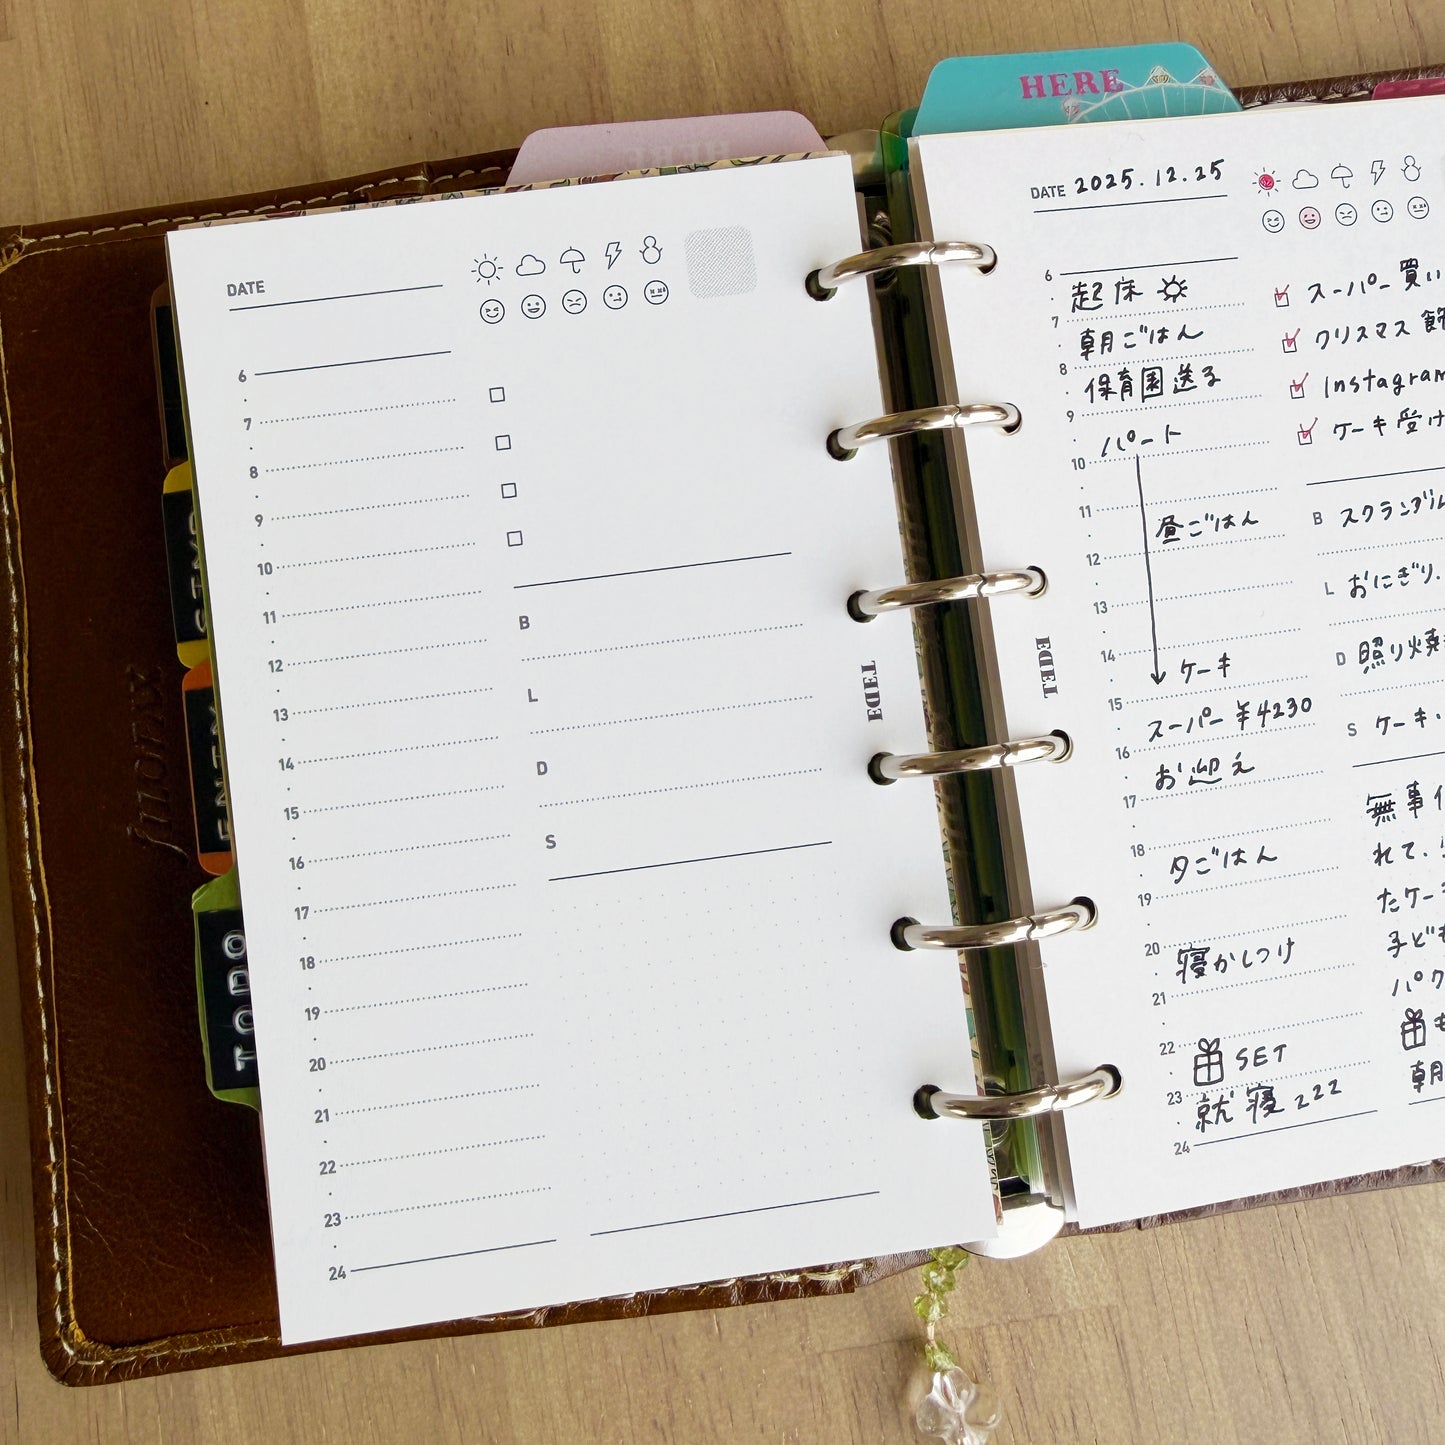 HERE
DATE
6
7
8
9
10
11
12
13
14
15
16
17
18
19
20
21
22
23
24
B
L
D
S
TEDE
filofax
TODO
DATE 2025.12.25
6
起床
7
朝ごはん
8
保育園送る
9
パート
10
11
昼ごはん
12
13
14
ケーキ
15
スーパー ¥4230
16
お迎え
17
18
夕ごはん
19
20
寝かしつけ
21
22
SET
23
就寝 zzz
24
スーパー 買い
クリスマス 飾
Instagram
ケーキ受け
B スクランブル
L おにぎり.
D 照り焼
S ケーキ.
無事
れて.
たケー
子ども
パク
も
朝
TEDE